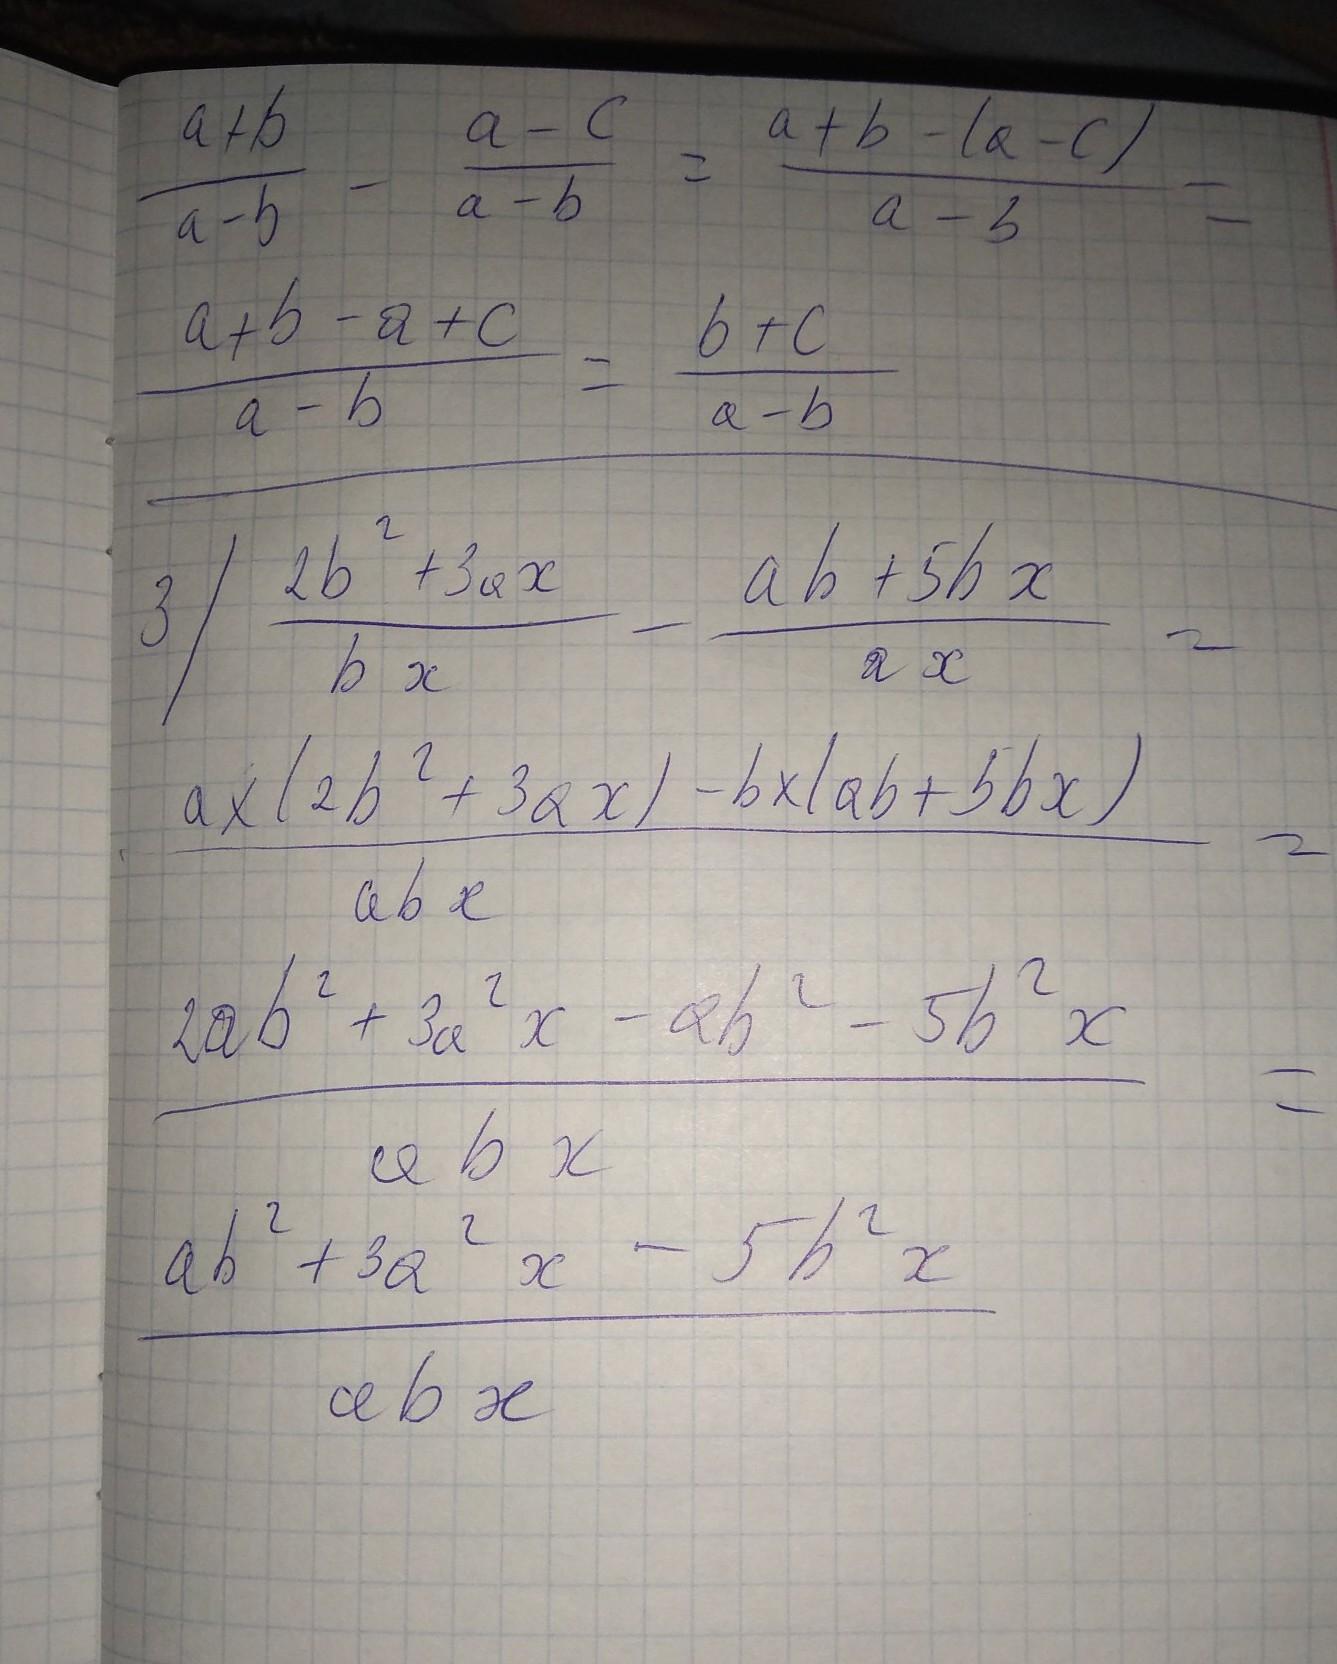 (a+b)/(a-b) - (a-c)/(a-b) = (a+b-(a-c))/(a-b) =
(a+b-a+c)/(a-b) = (b+c)/(a-b)
3/ (2b²+3ax)/(bx) - (ab+5bx)/(ax) =
(ax(2b²+3ax)-bx(ab+5bx))/(abx) =
(2ab²+3a²x-ab²-5b²x)/(abx) =
(ab²+3a²x-5b²x)/(abx)